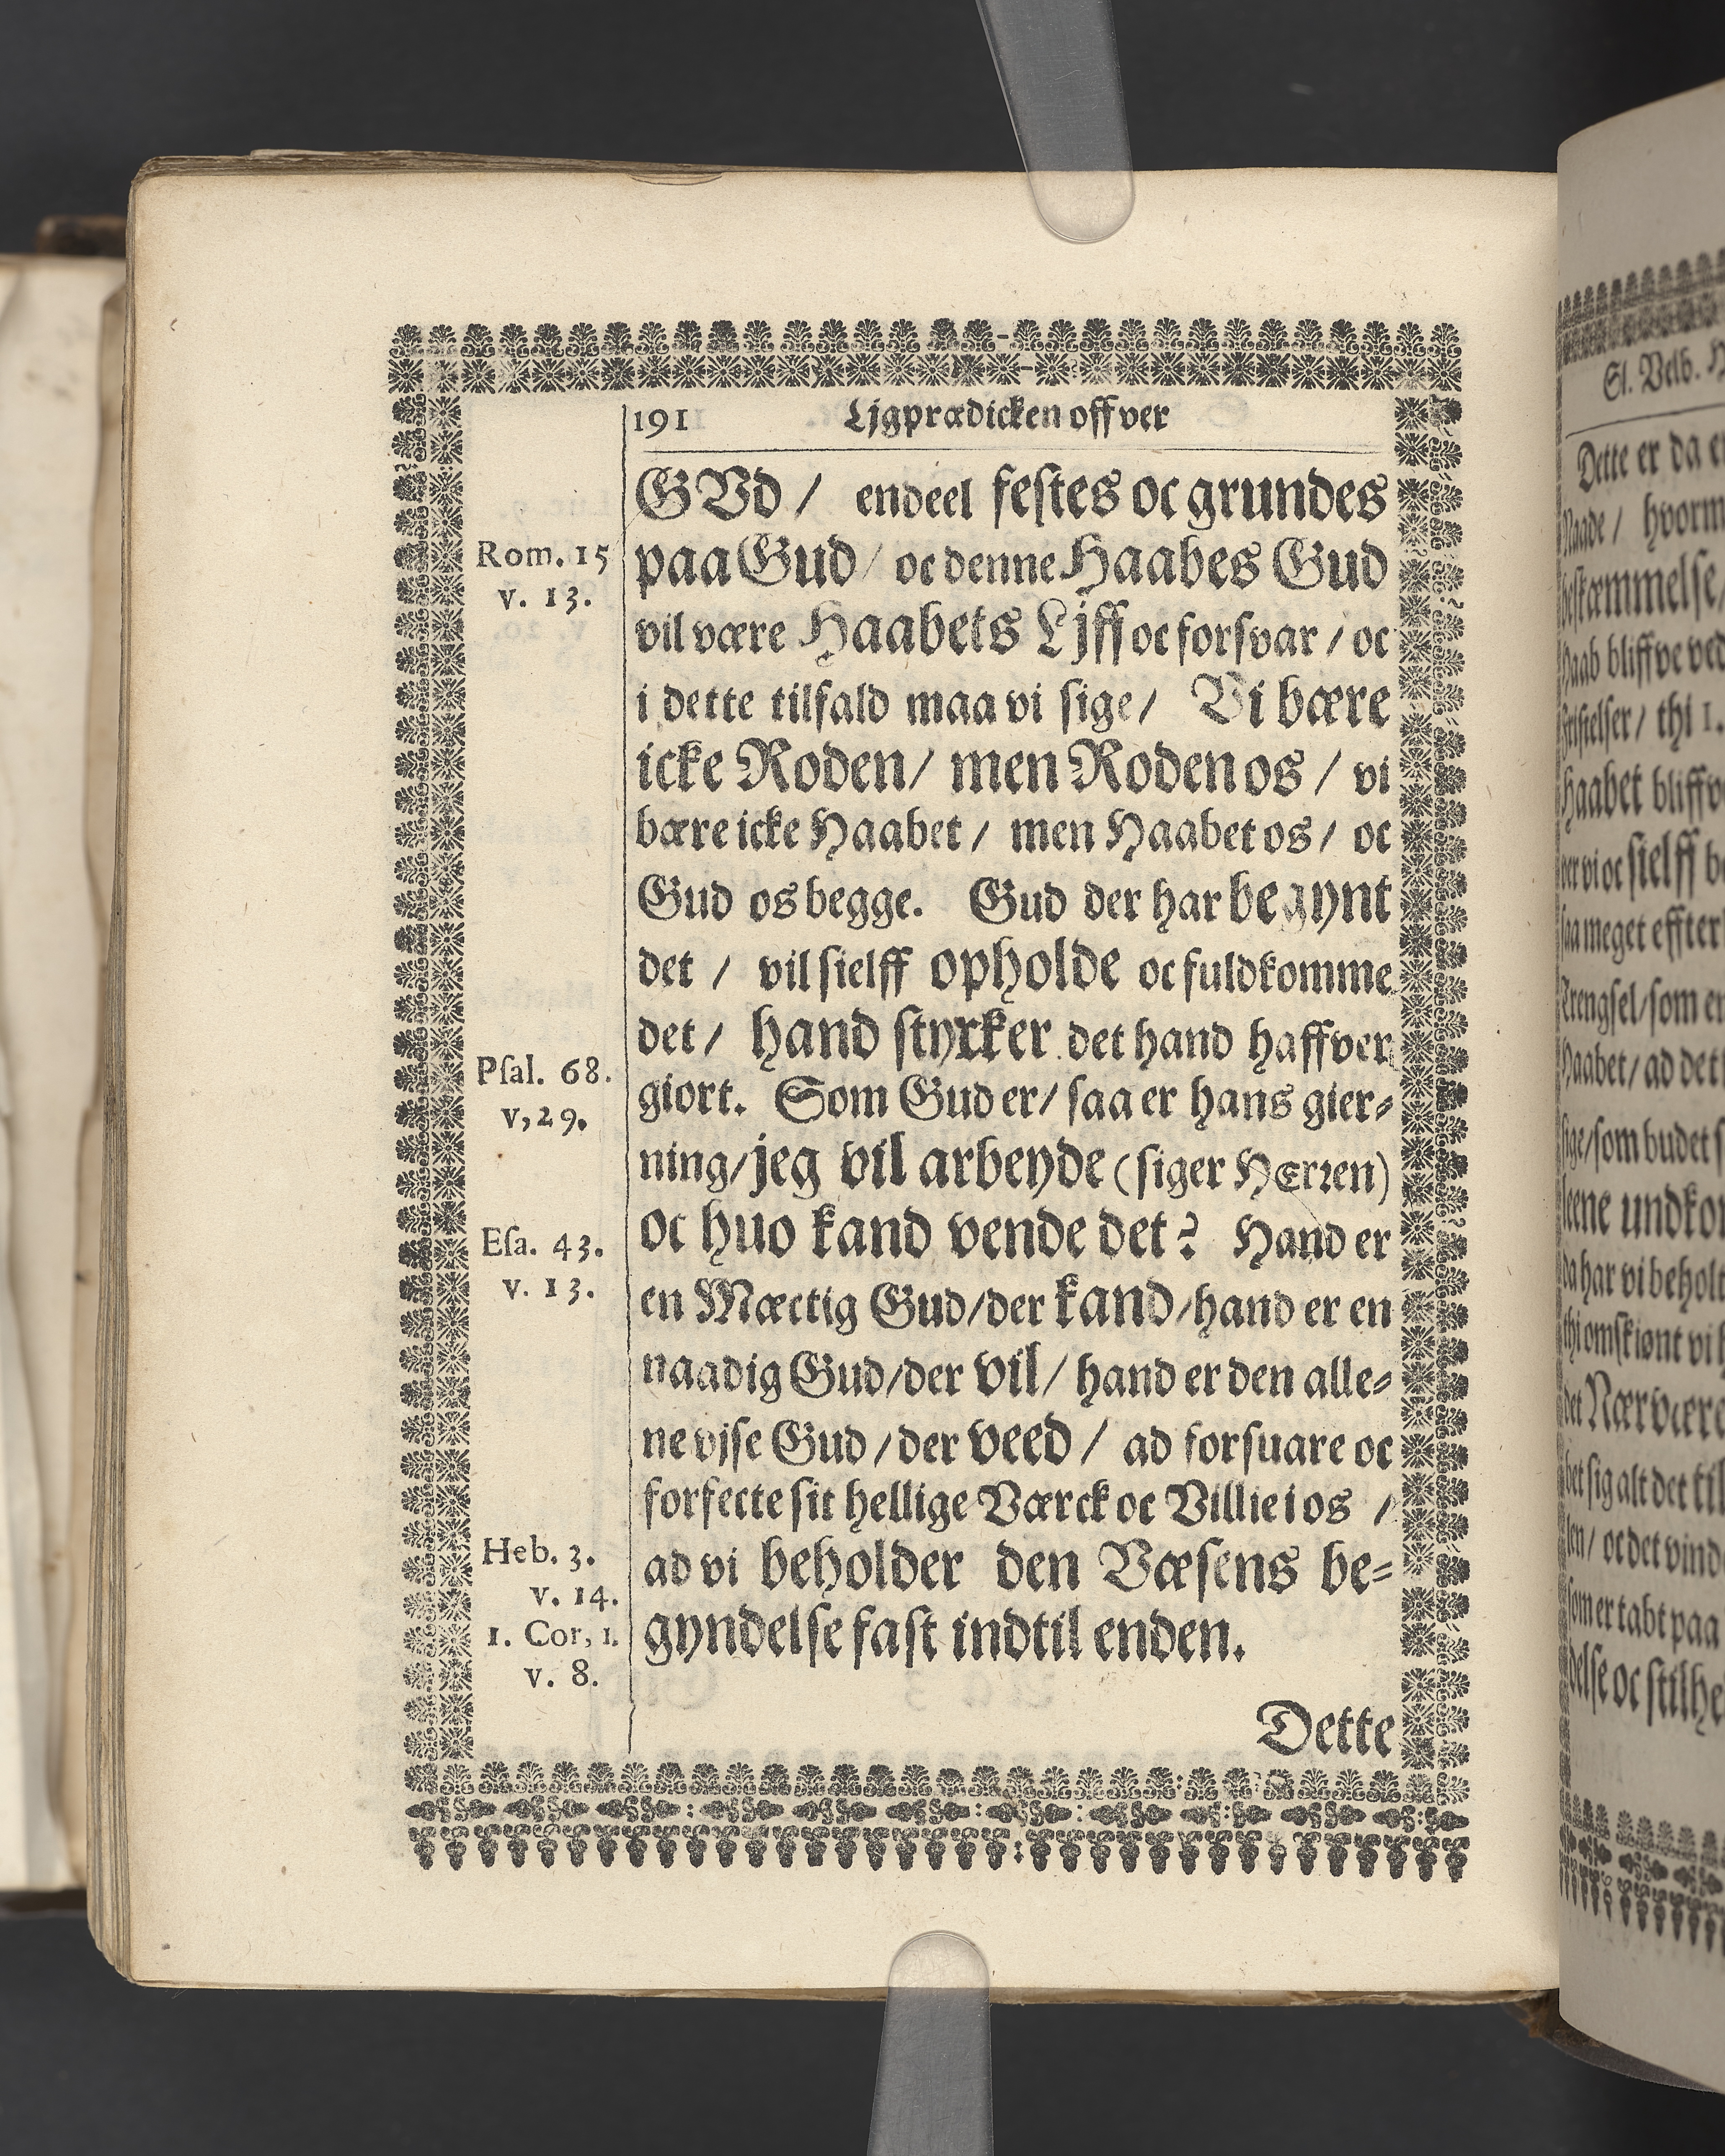 191 Ljgprædicken offver
GVd / endeel festes oc grundes
Rom. 15
v. 13.
paa Gud / oc denne Haabes Gud
vil være Haabets Ljff oc forsvar / oc
i dette tilfald maa vi sige / Vi bære
icke Roden / men Roden os / vi
bære icke Haabet / men Haabet os / oc
Gud os begge. Gud der har begynt
det / vil sielff opholde oc fuldkomme
det / hand styrker det hand haffver
Psal. 68.
v,29.
giort. Som Gud er / saa er hans gier-
ning / jeg vil arbeyde (siger HErren)
Esa. 43.
v. 13.
oc huo kand vende det? Hand er
en Mæctig Gud / der kand / hand er en
naadig Gud / der vil / hand er den alle-
ne vjse Gud / der veed / ad forsuare oc
forfecte sit hellige Værck oc Villie i os /
Heb. 3.
v. 14.
ad vi beholder den Væsens be-
1. Cor, 1.
v. 8.
gyndelse fast indtil enden.
Dette
Sl. Velb.
Dette er da
Naade / hvorm
bestæmmelse,
Haab bliffve ved
fristelser / thi 1.
Haabet
er vi oc sielff
saa meget effter
Trengsel / som er
Haabet / ad det
sige / som budet
leene
da har vi beholt
thi omskiønt vi
det Nærvære
bet sig alt det til
len / oc det vind
som er tabt paa
delse oc stilhe